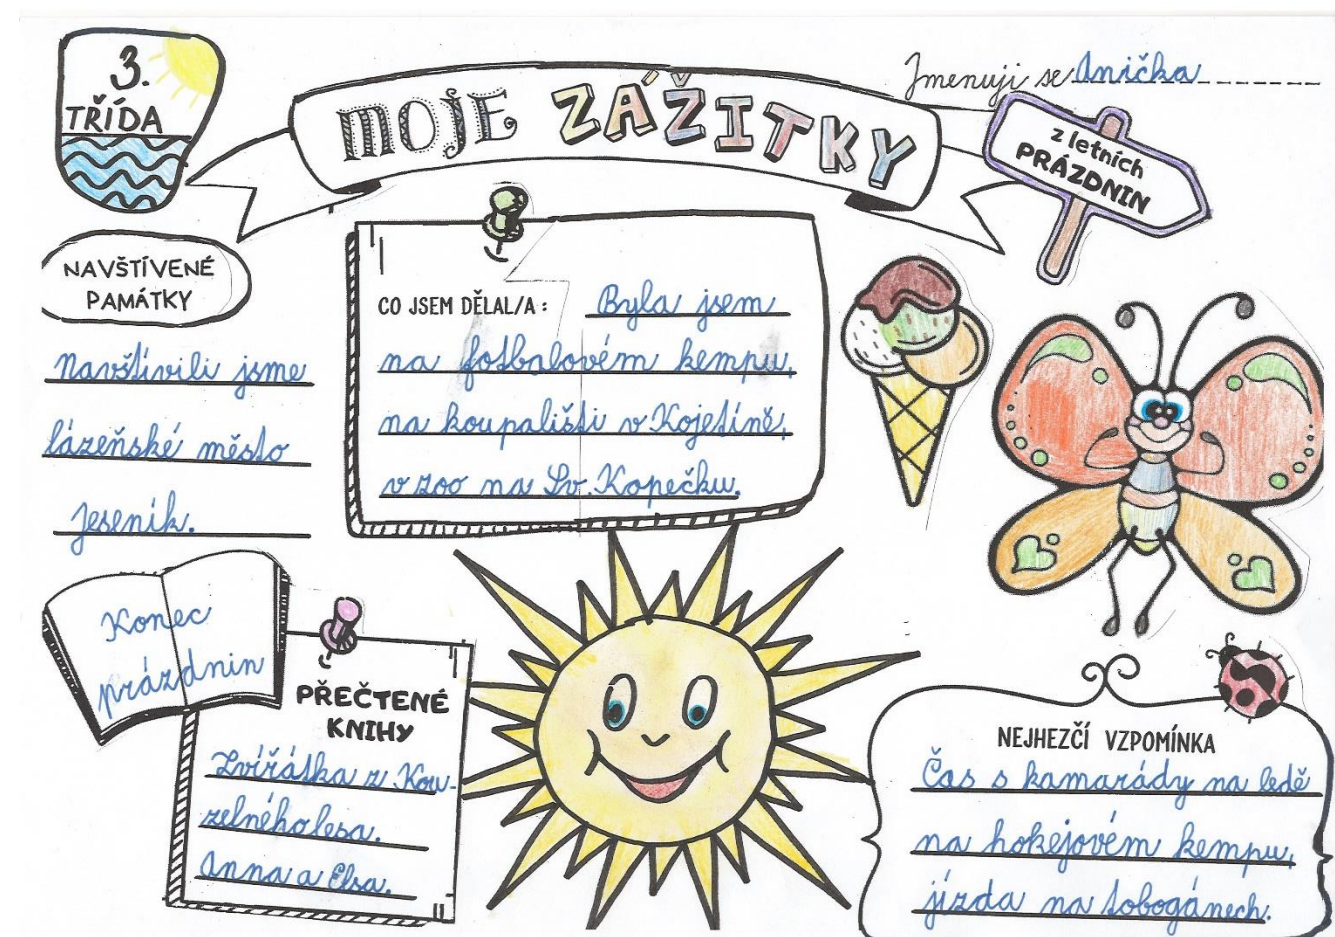 3.
TŘÍDA
Jmenuji se Anička
MOJE ZÁŽITKY
z letních
PRÁZDNIN
NAVŠTÍVENÉ
PAMÁTKY
Navštívili jsme
lázeňské město
Jeseník.
CO JSEM DĚLAL/A: Byla jsem
na fotbalovém kempu,
na koupališti v Kojetíně,
v zoo na Sv. Kopečku.
Konec
prázdnin
PŘEČTENÉ
KNIHY
Zvířátka z Kou-
zelného lesa.
Anna a Elsa.
NEJHEZČÍ VZPOMÍNKA
Čas s kamarády na ledě
na hokejovém kempu,
jízda na tobogánech.